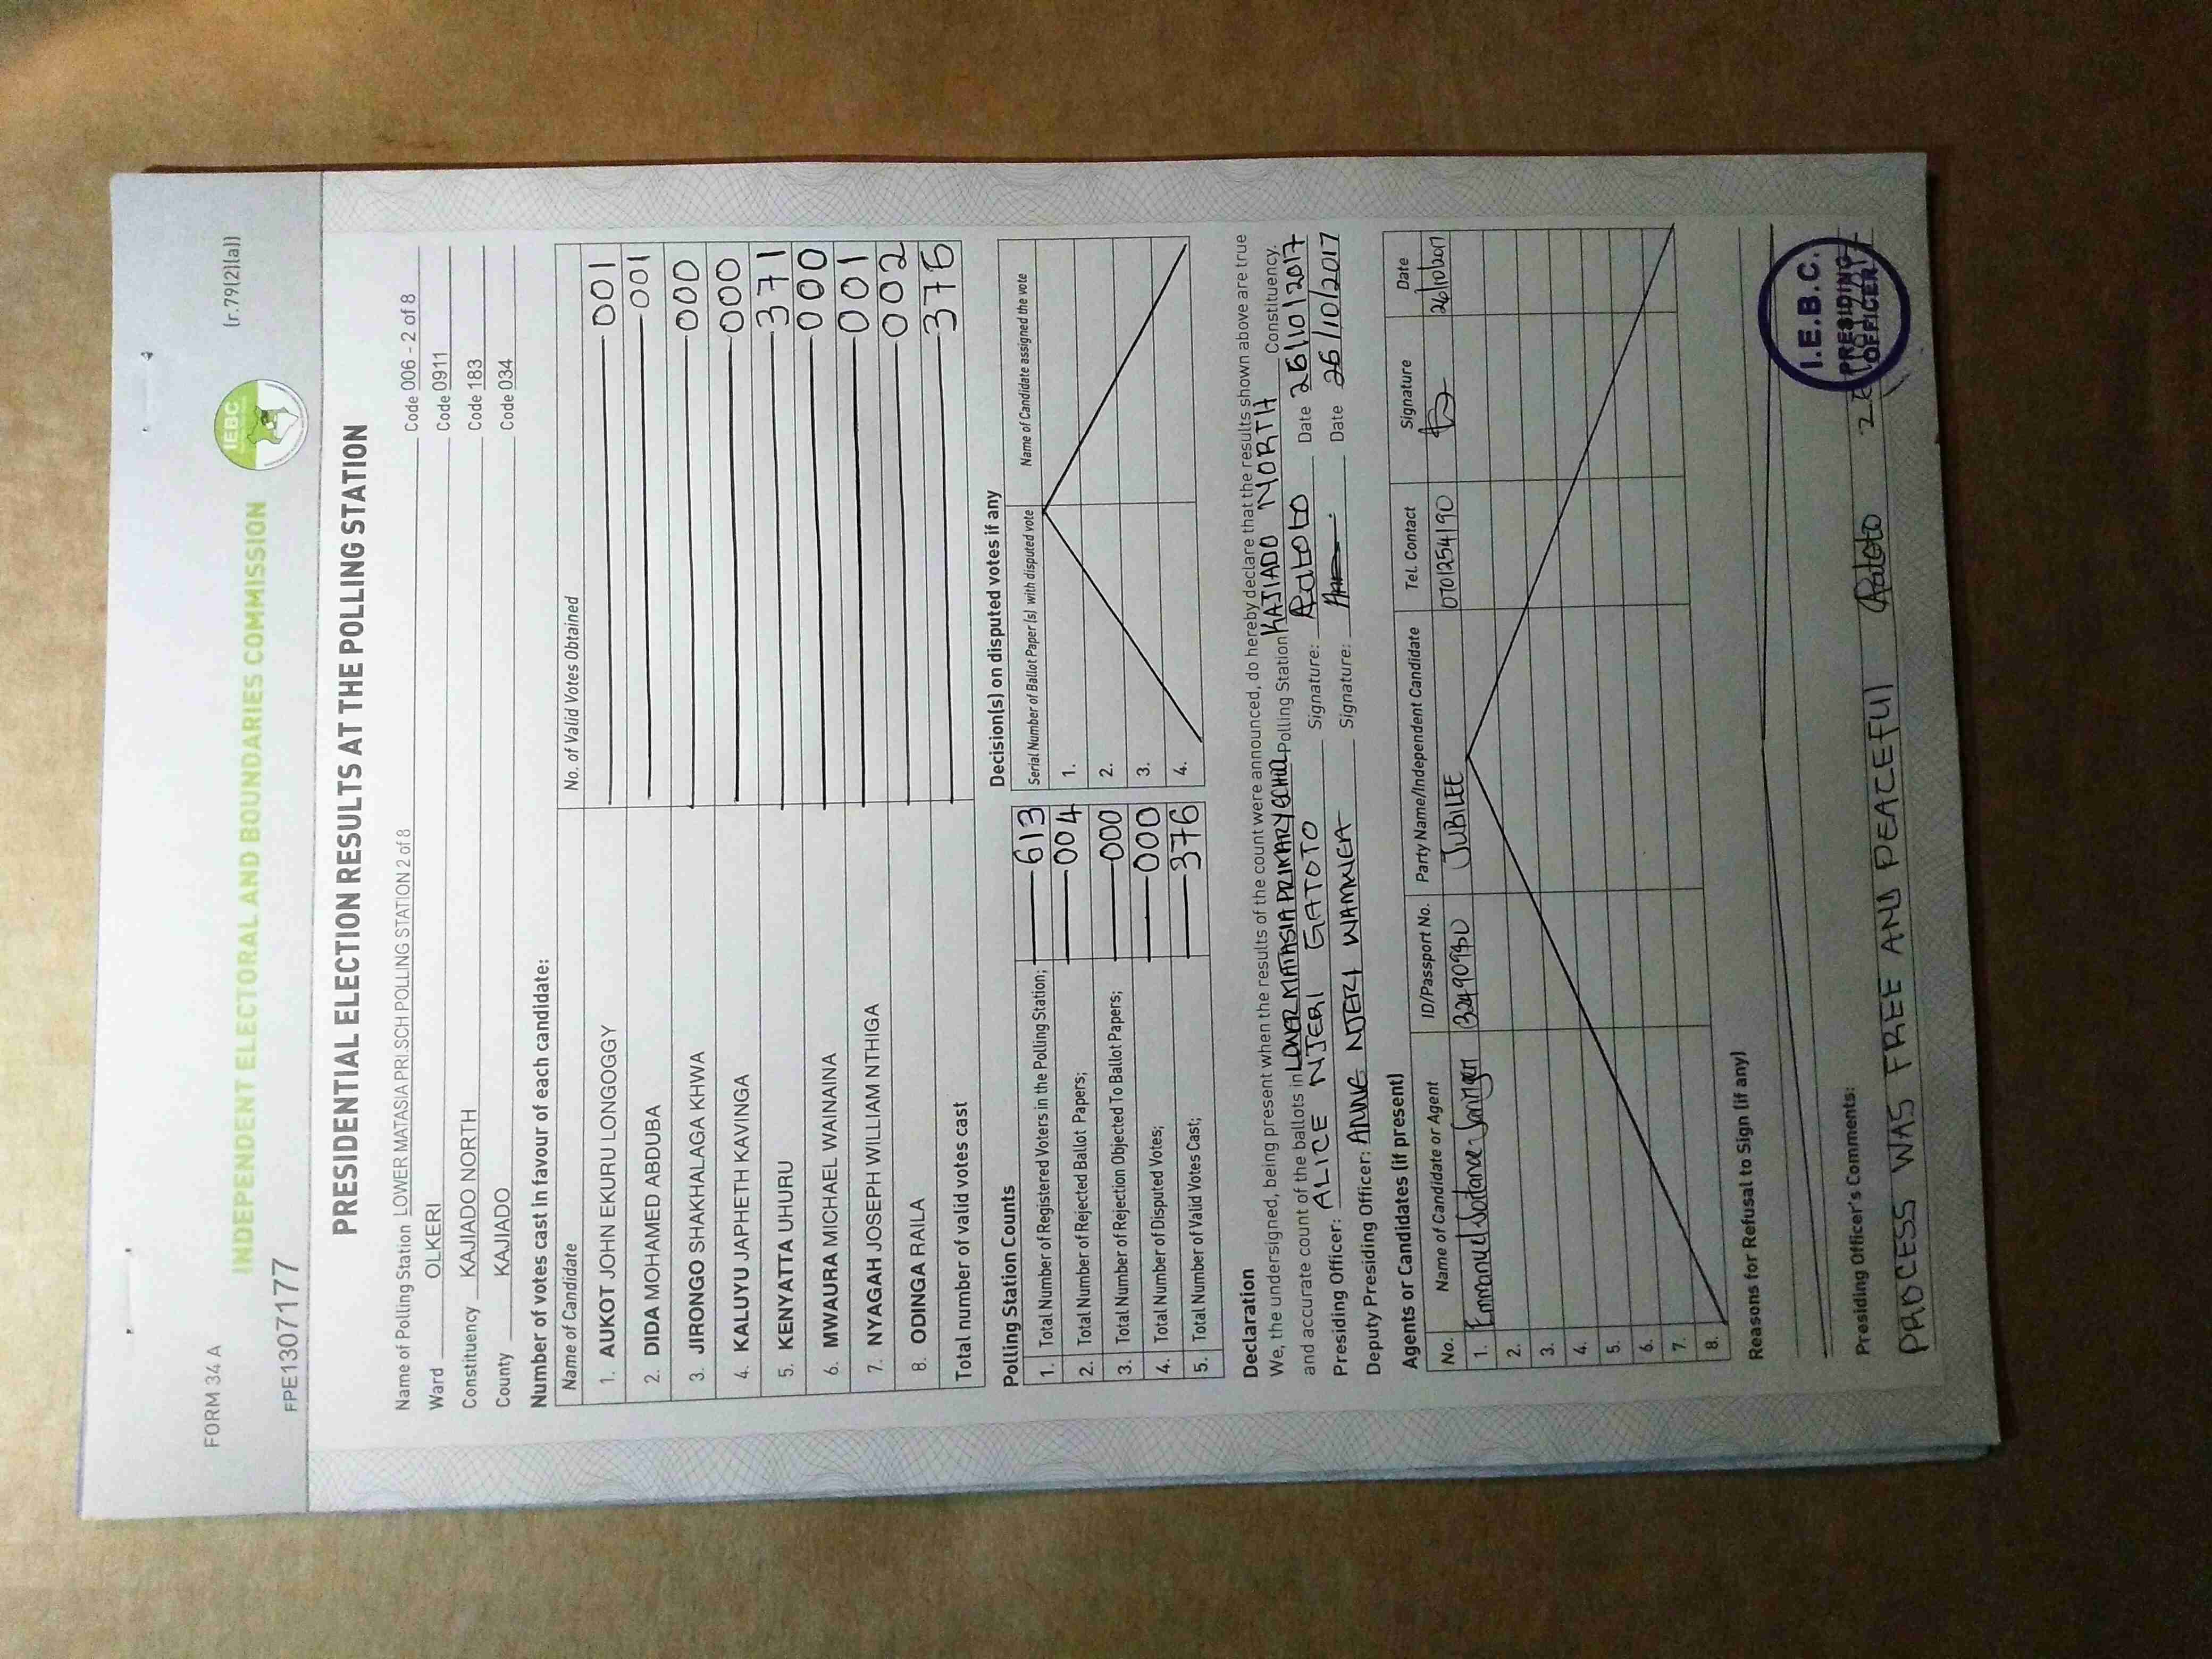 FORM 34 A
(r.79(2)(a))
IEBC
INDEPENDENT ELECTORAL AND BOUNDARIES COMMISSION
FPE1307177
PRESIDENTIAL ELECTION RESULTS AT THE POLLING STATION
Name of Polling Station LOWER MATASIA PRI.SCH POLLING STATION 2 of 8 Code 006 - 2 of 8
Ward OLKERI Code 0911
Constituency KAJIADO NORTH Code 183
County KAJIADO Code 034
Number of votes cast in favour of each candidate:
Name of Candidate No. of Valid Votes Obtained
1. AUKOT JOHN EKURU LONGOGGY 001
2. DIDA MOHAMED ABDUBA 001
3. JIRONGO SHAKHALAGA KHWA 000
4. KALUYU JAPHETH KAVINGA 000
5. KENYATTA UHURU 371
6. MWAURA MICHAEL WAINAINA 000
7. NYAGAH JOSEPH WILLIAM NTHIGA 001
8. ODINGA RAILA 002
Total number of valid votes cast 376
Polling Station Counts
1. Total Number of Registered Voters in the Polling Station; 613
2. Total Number of Rejected Ballot Papers; 004
3. Total Number of Rejection Objected To Ballot Papers; 000
4. Total Number of Disputed Votes; 000
5. Total Number of Valid Votes Cast; 376
Decision(s) on disputed votes if any
Serial Number of Ballot Paper (s) with disputed vote Name of Candidate assigned the vote
1.
2.
3.
4.
Declaration
We, the undersigned, being present when the results of the count were announced, do hereby declare that the results shown above are true
and accurate count of the ballots in LOWER MATASIA PRIMARY SCHOOL Polling Station KAJIADO NORTH Constituency.
Presiding Officer: ALICE NJERI GATOTO Signature: Gatoto Date 26/10/2017
Deputy Presiding Officer: ANNE NJERI WAMWEA Signature: Date 26/10/2017
Agents or Candidates (if present)
No. Name of Candidate or Agent ID/Passport No. Party Name/Independent Candidate Tel. Contact Signature Date
1. Emmanuel JUBILEE 0701254190 26/10/2017
2.
3.
4.
5.
6.
7.
8.
Reasons for Refusal to Sign (if any)
Presiding Officer's Comments:
PROCESS WAS FREE AND PEACEFUL Gatoto
I.E.B.C.
PRESIDING
OFFICER